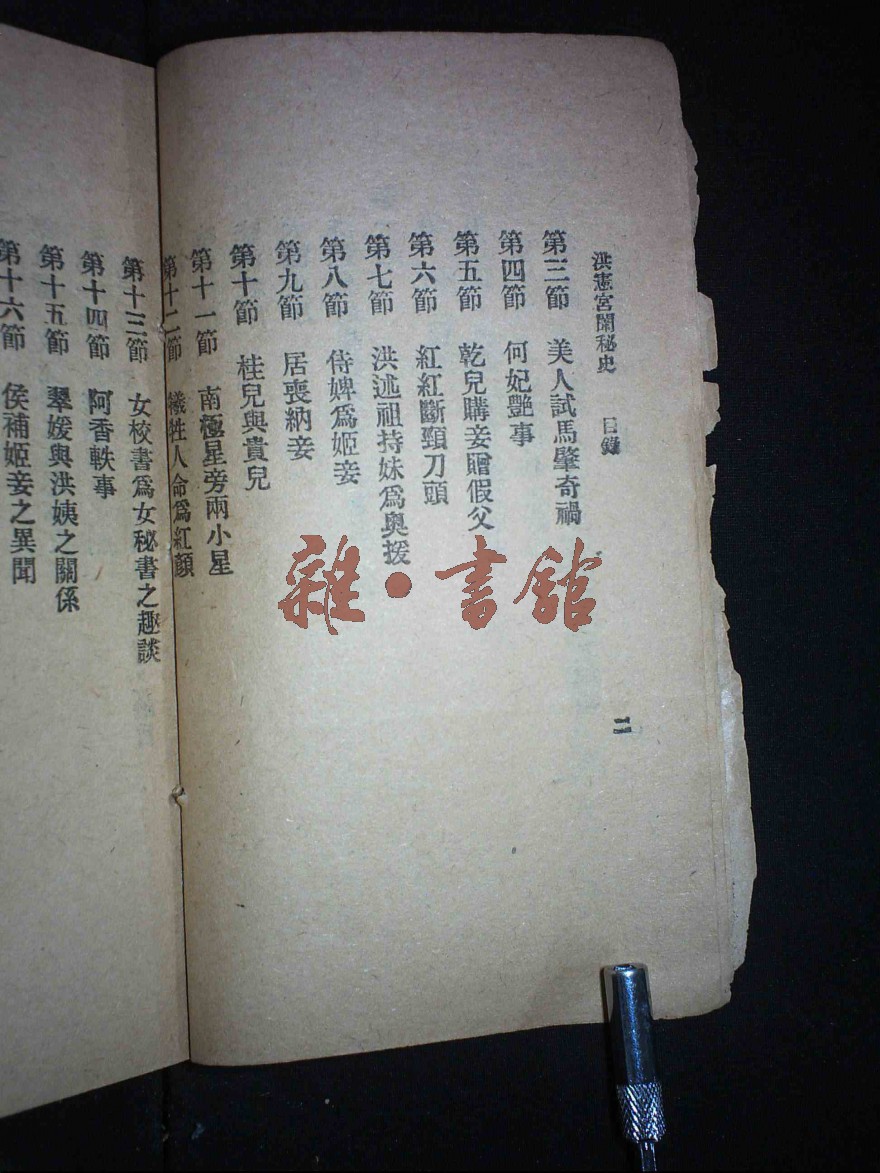 洪憲宮闈秘史 目錄
第三節 美人試馬肇奇禍
第四節 何妃艷事
第五節 乾兒購妾贈假父
第六節 紅紅斷頸刀頭
第七節 洪述祖持妹爲奧援
第八節 侍婢爲姬妾
第九節 居喪納妾
第十節 桂兒與貴兒
第十一節 南極星旁兩小星
二
第十二節 犧牲人命爲紅顏
第十三節 女校書爲女秘書之趣談
第十四節 阿香軼事
第十五節 翠媛與洪姨之關係
第十六節 侯補姬妾之異聞
雜·書館